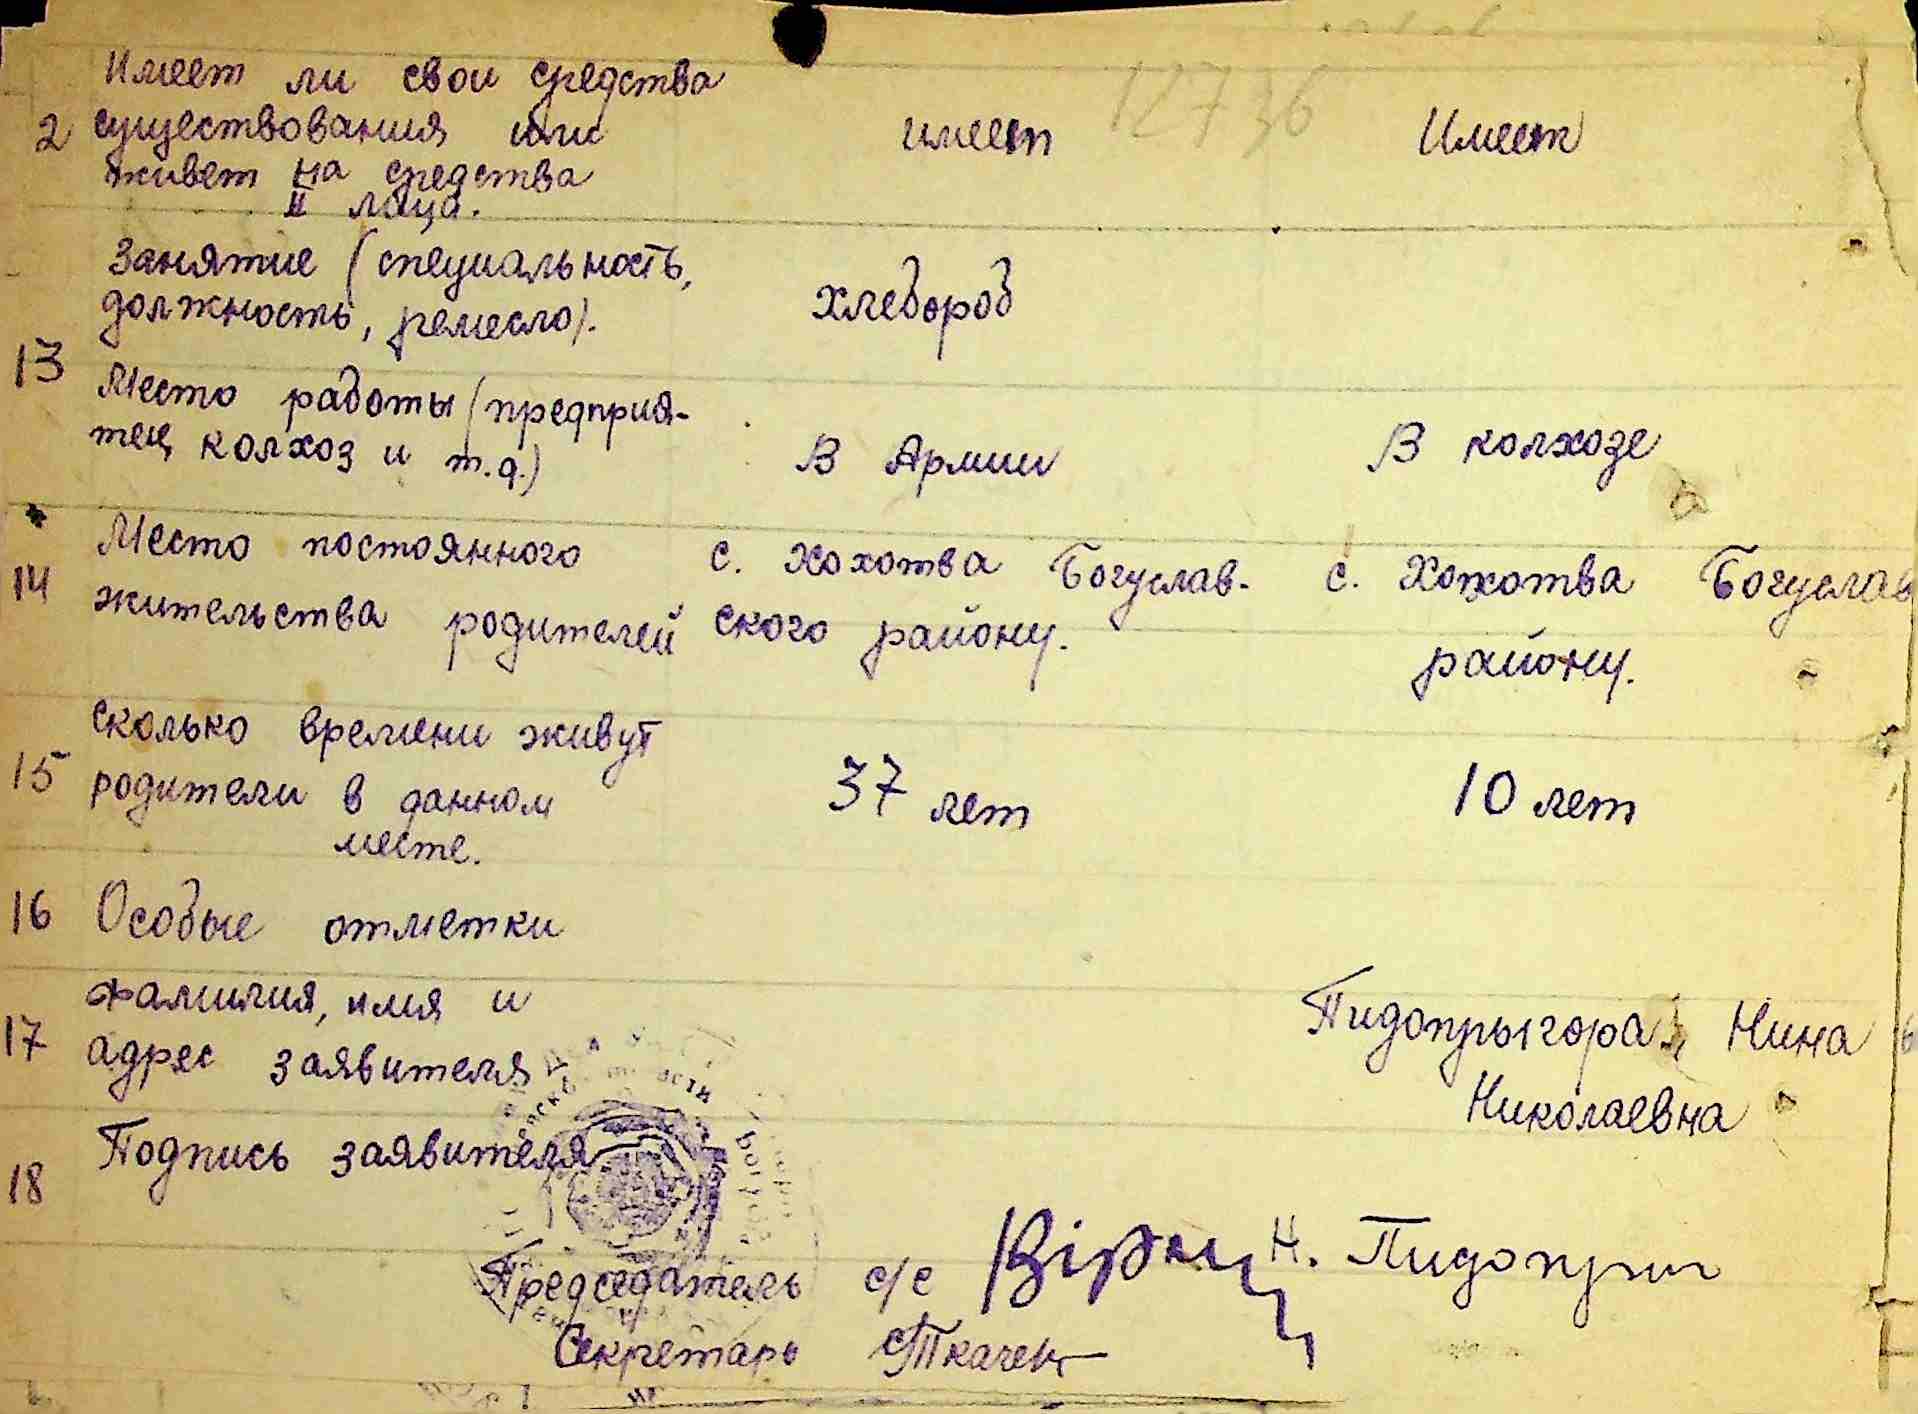 12736
Имеет ли свои средства
2 существования или имеет Имеет
живет на средства
II лица.
Занятие (специальность,
должность, ремесло). хлебороб
13
Место работы (предприя-
тец колхоз и т.д.) В Армии В колхозе
14 Место постоянного с. Хохотва Богуслав- с. Хохотва Богуслав
жительства родителей ского району. району.
сколько времени живут
15 родители в данном 37 лет 10 лет
месте.
16 Особые отметки
фамилия, имя и Пидопрыгора Нина
17 адрес заявителя Николаевна
18 Подпись заявителя
Председатель с/с Н. Пидоприг
Секретарь